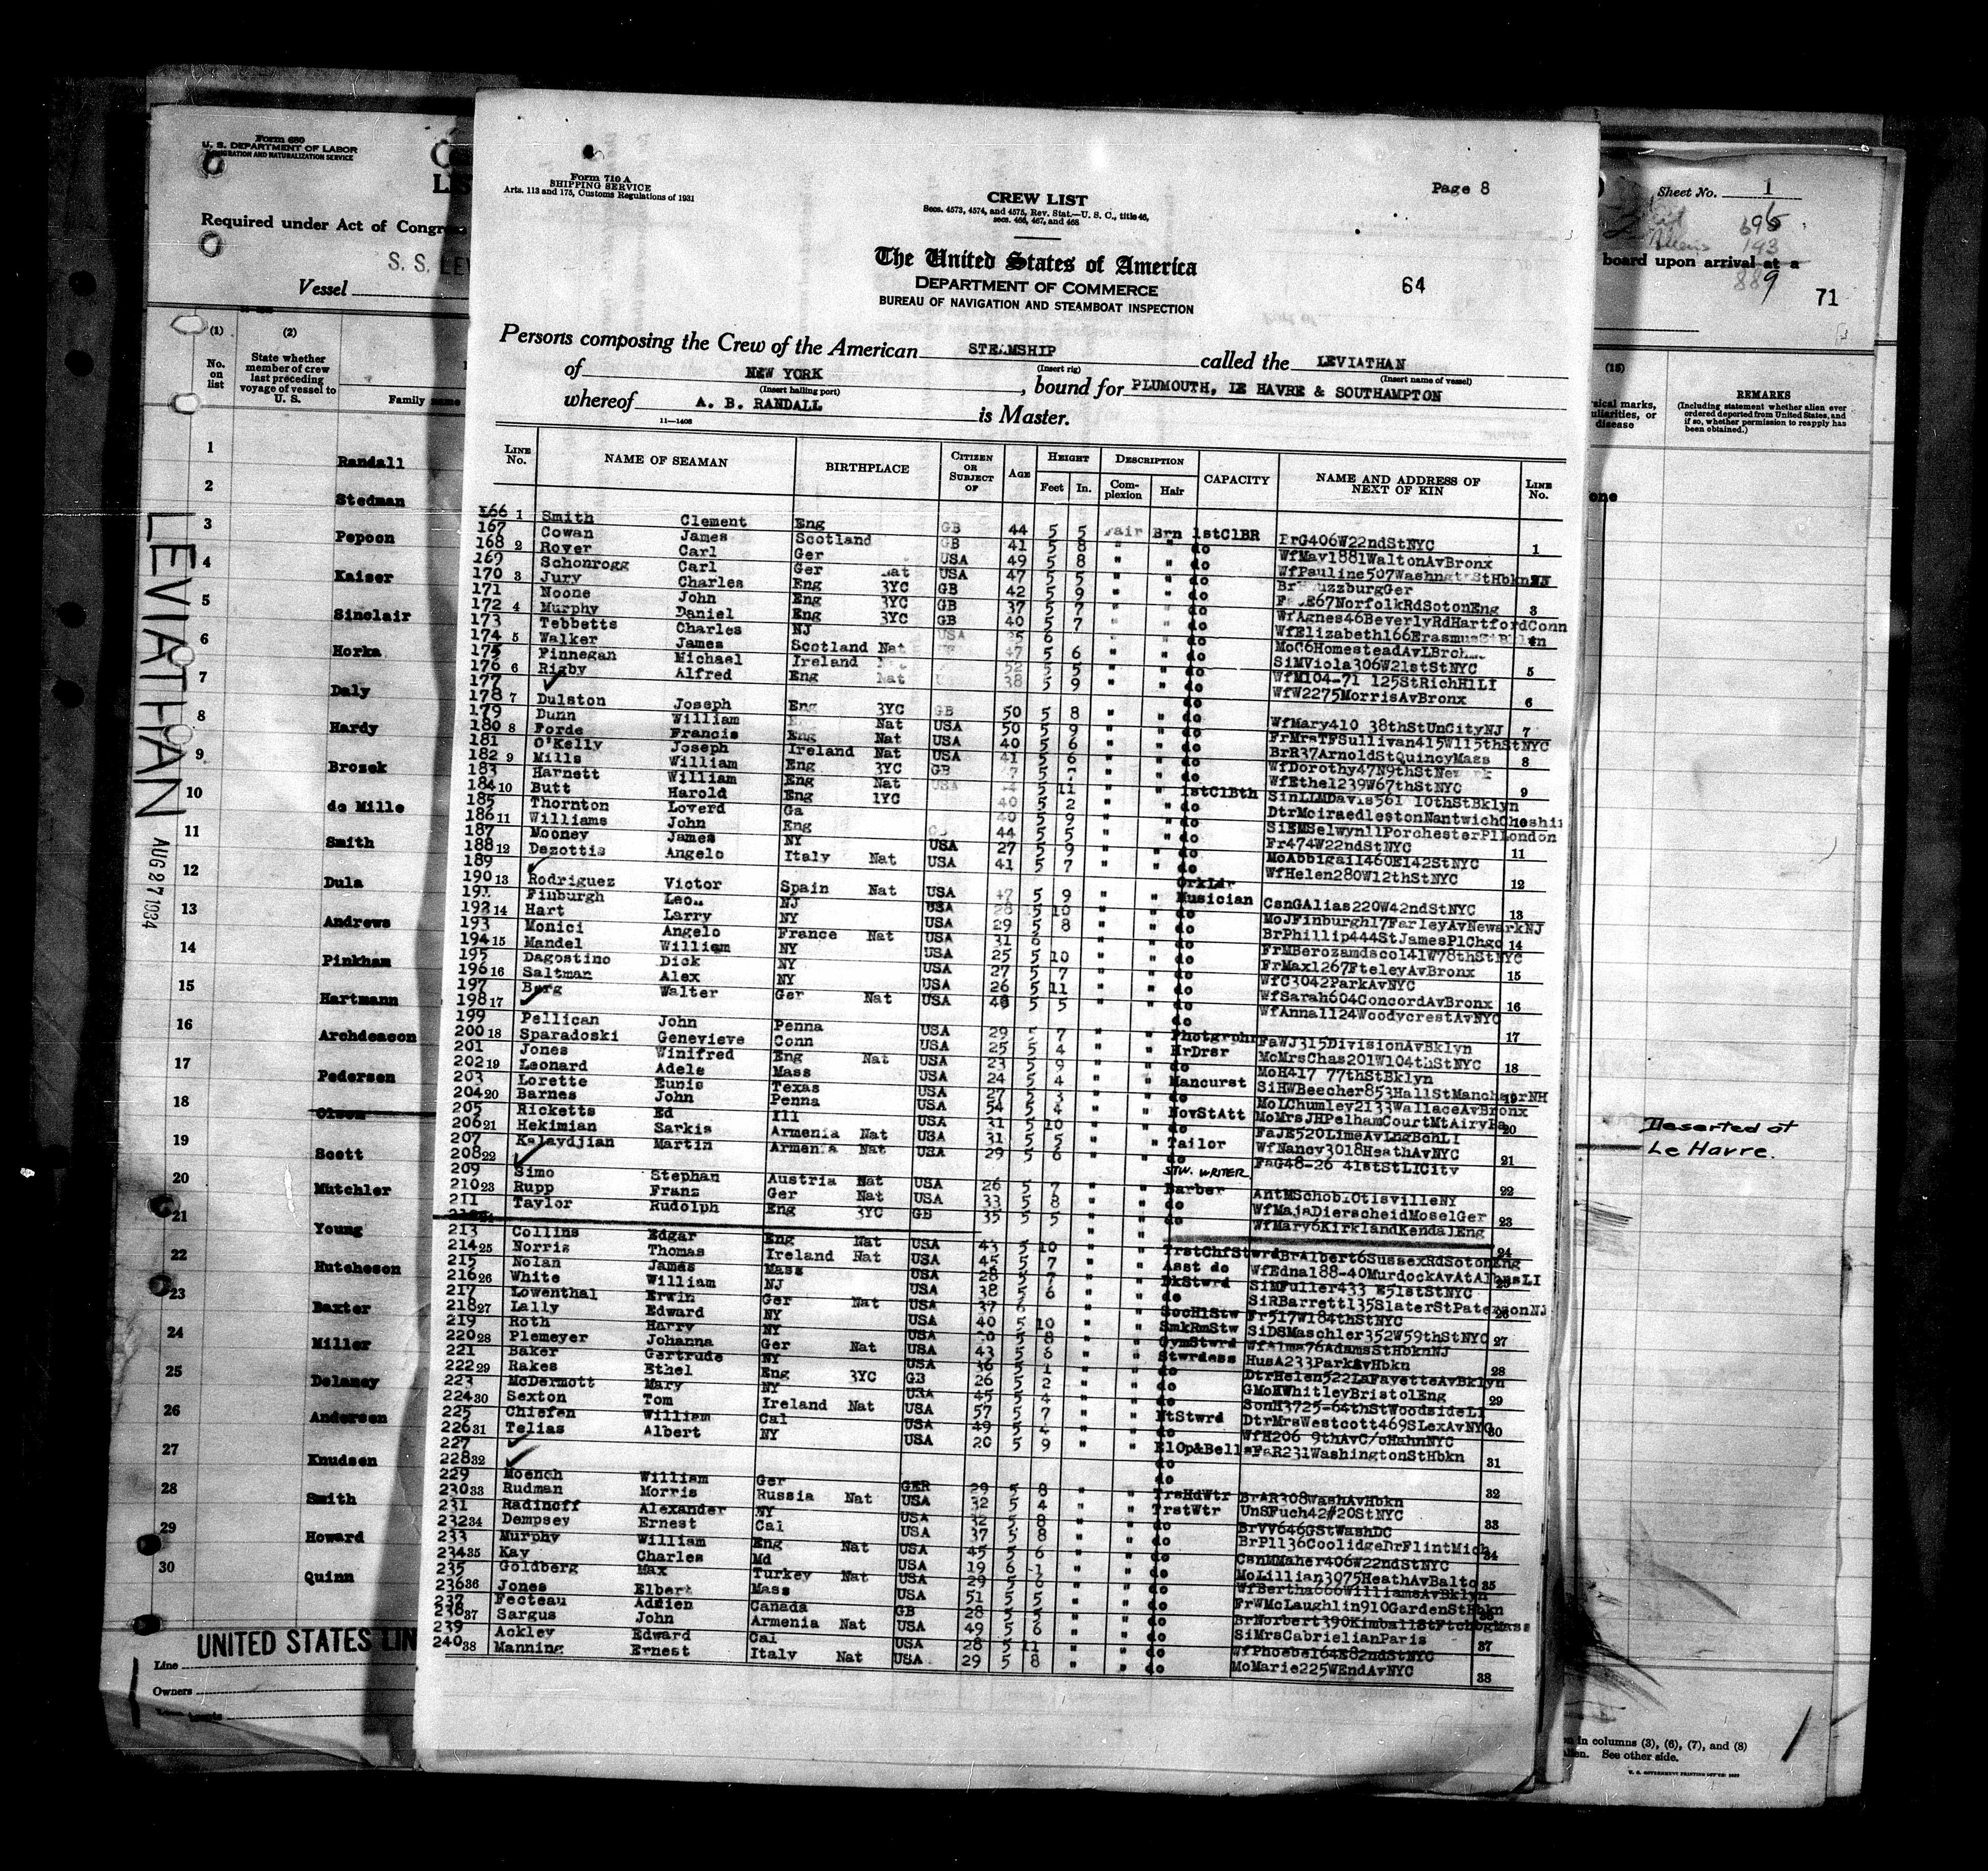 Form 680
U. S. DEPARTMENT OF LABOR
IMMIGRATION AND NATURALIZATION SERVICE
LIS
Required under Act of Congre
S. S. LEV
Vessel
(1)
(2)
No. on list
State whether member of crew last preceding voyage of vessel to U. S.
Family name
1 Randall
2 Stedman
3 Pepoon
4 Kaiser
5 Sinclair
6 Horka
7 Daly
8 Hardy
9 Brozek
10 de Mille
11 Smith
12 Dula
13 Andrews
14 Pinkham
15 Hartmann
16 Archdeacon
17 Pedersen
18 Olsen
19 Scott
20 Mutchler
21 Young
22 Hutcheson
23 Baxter
24 Miller
25 Delaney
26 Andersen
27 Knudsen
28 Smith
29 Howard
30 Quinn
UNITED STATES LIN
Line
Owners
LEVIATHAN
AUG 27 1934
Form 710 A
SHIPPING SERVICE
Arts. 113 and 175, Customs Regulations of 1931
Page 8
CREW LIST
Secs. 4573, 4574, and 4575, Rev. Stat.—U. S. C., title 46,
secs. 466, 467, and 468
The United States of America
DEPARTMENT OF COMMERCE
BUREAU OF NAVIGATION AND STEAMBOAT INSPECTION
64
Persons composing the Crew of the American STEAMSHIP called the LEVIATHAN
(Insert rig) (Insert name of vessel)
of NEW YORK, bound for PLUMOUTH, LE HAVRE & SOUTHAMPTON
(Insert hailing port)
whereof A. B. RANDALL is Master.
11—1408
LINE No. NAME OF SEAMAN BIRTHPLACE CITIZEN OR SUBJECT OF AGE HEIGHT DESCRIPTION CAPACITY NAME AND ADDRESS OF NEXT OF KIN LINE No.
Feet In. Complexion Hair
166 1 Smith Clement Eng GB 44 5 5 Fair Brn 1stClBR BrG406W22ndStNYC 1
167 Cowan James Scotland GB 41 5 8 " " do WfMay1881WaltonAvBronx
168 2 Rover Carl Ger USA 49 5 8 " " do
169 Schonrogg Carl Ger Nat USA 47 5 5 " " do
170 3 Jury Charles Eng 3YC GB 42 5 9 " " do 3
171 Noone John Eng 3YC GB 37 5 7 " " do WfAgnes46BeverlyRdHartfordConn
172 4 Murphy Daniel Eng 3YC GB 40 5 7 " " do
173 Tebbetts Charles NJ USA 6 " " do
174 5 Walker James Scotland Nat 47 5 6 " " do SiMViola306W21stStNYC 5
175 Finnegan Michael Ireland 52 5 5 " " do WfM104-71 125StRichHlLI
176 6 Rigby Alfred Eng Nat 38 5 9 " " do WfW2275MorrisAvBronx 6
177 do
178 7 Dulston Joseph Eng 3YC GB 50 5 8 " " do WfMary410 38thStUnCityNJ 7
179 Dunn William Nat USA 50 5 9 " " do FrMrsTFSullivan415W115thStNYC
180 8 Forde Francis Eng Nat USA 40 5 6 " " do BrR37ArnoldStQuincyMass 8
181 O'Kelly Joseph Ireland Nat USA 41 5 6 " " do
182 9 Mills William Eng 3YC GB 5 " " do WfEthel239W67thStNYC 9
183 Harnett William Eng Nat USA 5 11 " " 1stClBth SinLLMDavis561 10thStBklyn
184 10 Butt Harold Eng 1YC 40 5 2 " " do
185 Thornton Loverd Ga 40 5 9 " " do SiEMSelwyn11PorchesterPlLondon
186 11 Williams John Eng 44 5 5 " " do Fr474W22ndStNYC 11
187 Mooney James NY USA 27 5 9 " " do MoAbbigail460E142StNYC
188 12 Dezottis Angelo Italy Nat USA 41 5 7 " " do WfHelen280W12thStNYC 12
189 OrkLdr
190 13 Rodriguez Victor Spain Nat USA 47 5 9 " " Musician CsnGAlias220W42ndStNYC 13
191 Finburgh NJ USA 28 5 10 " " do MoJFinburgh17FarleyAvNewarkNJ
192 14 Hart Larry NY USA 29 5 8 " " do BrPhillip444StJamesPlChgo 14
193 Monici Angelo France Nat USA 31 6 " " do
194 15 Mandel William NY USA 25 5 10 " " do FrMax1267FteleyAvBronx 15
195 Dagostino Dick NY USA 27 5 7 " " do WfC3042ParkAvNYC
196 16 Saltman Alex NY USA 26 5 11 " " do WfSarah604ConcordAvBronx 16
197 Berg Walter Ger Nat USA 5 5 " " do WfAnna1124WoodycrestAvNYC
198 17 do 17
199 Pellican John Penna USA 29 5 7 " " Photgrphr FaWJ315DivisionAvBklyn
200 18 Sparadoski Genevieve Conn USA 25 5 4 " " HrDrsr McMrsChas201W104thStNYC 18
201 Jones Winifred Eng Nat USA 23 5 9 " " do MoH417 77thStBklyn
202 19 Leonard Adele Mass USA 24 5 4 " " Mancurst SiHWBeecher853HallStManchsrNH 19
203 Lorette Eunis Texas USA 27 5 3 " " do MoLChumley2133WallaceAvBronx
204 20 Barnes John Penna USA 54 5 4 " " NovStAtt MoMrsJHPelhamCourtMtAiryPa 20
205 Ricketts Ed Ill USA 31 5 10 " " do FaJE520LimeAvLngBchLI
206 21 Hekimian Sarkis Armenia Nat USA 31 5 5 " " Tailor WfNancy3018HeathAvNYC 21
207 Kalaydjian Martin Armenia Nat USA 29 5 6 " " do FaG48-26 41stStLICity
208 22 STW. WRITER 22
209 Simo Stephan Austria Nat USA 26 5 7 " " Barber AntMSchobl0tisvilleNY
210 23 Rupp Franz Ger Nat USA 33 5 8 " " do WfMajaDierscheidMoselGer 23
211 Taylor Rudolph Eng 3YC GB 35 5 5 " " do WfMary6KirklandKendalEng
212 24 24
213 Collins Edgar Eng Nat USA 43 5 10 " " TrstChfStwrd BrAlbert6SussexRdSotonEng
214 25 Norris Thomas Ireland Nat USA 45 5 7 " " Asst do WfEdna188-40MurdockAvAtAlbnsLI 25
215 Nolan James Mass USA 28 5 7 " " DkStwrd SiMFuller433 E51stStNYC
216 26 White William NJ USA 38 5 6 " " do SiRBarrett135SlaterStPatersonNJ 26
217 Lowenthal Erwin Ger Nat USA 37 6 " " SocHlStw Fr517W184thStNYC
218 27 Lally Edward NY USA 40 5 10 " " SmkRmStw SiDSMaschler352W59thStNYC 27
219 Roth Harry NY USA 5 8 " " GymStwrd WfAlma76AdamsStHbknNJ
220 28 Plemeyer Johanna Ger Nat USA 43 5 6 " " Stwrdess HusA233ParkAvHbkn 28
221 Baker Gertrude NY USA 36 5 1 " " do DtrHelen522LaFayetteAvBklyn
222 29 Rakes Ethel Eng 3YC GB 26 5 2 " " do GMoHWhitleyBristolEng 29
223 McDermott Mary NY USA 45 5 4 " " do SonH3725-64thStWoodsideLI
224 30 Sexton Tom Ireland Nat USA 57 5 7 " " NtStwrd DtrMrsWestcott469SLexAvNYC 30
225 Chiefen William Cal USA 49 5 " " do WfH206 9thAvC/oHahnNYC
226 31 Telias Albert NY USA 20 5 9 " " ElOp&Bells FaR231WashingtonStHbkn 31
227 do
228 32 do 32
229 Moench William Ger GER 29 5 8 " " TrsHdWtr BrAR308WashAvHbkn
230 33 Rudman Morris Russia Nat USA 32 5 4 " " TrstWtr UnSFuch42#20StNYC 33
231 Radinoff Alexander NY USA 32 5 8 " " do BrVV646GStWashDC
232 34 Dempsey Ernest Cal USA 37 5 8 " " do BrP1136CoolidgeDrFlintMich 34
233 Murphy William Eng Nat USA 45 5 6 " " do CsnMMaher406W22ndStNYC
234 35 Kay Charles Md USA 19 6 1 " " do MoLillian3975HeathAvBalto 35
235 Goldberg Max Turkey Nat USA 29 5 6 " " do WfBertha666WilliamsAvBklyn
236 36 Jones Elbert Mass USA 51 5 5 " " do FrWMcLaughlin910GardenStHbkn 36
237 Fecteau Adrien Canada GB 28 5 5 " " do BrNorbert390KimballStFtchbgMass
238 37 Sargus John Armenia Nat USA 49 5 6 " " do SiMrsCabrielianParis 37
239 Ackley Edward Cal USA 28 5 11 " " do WfPhoebe164E82ndStNYC
240 38 Manning Ernest Italy Nat USA 29 5 8 " " do MoMarie225WEndAvNYC 38
Sheet No. 1
695
143
889
board upon arrival at a
71
(15)
sical marks,
uliarities, or
disease
REMARKS
(Including statement whether alien ever ordered deported from United States, and if so, whether permission to reapply has been obtained.)
one
Deserted at
Le Havre.
in columns (3), (6), (7), and (8)
alien. See other side.
U. S. GOVERNMENT PRINTING OFFICE